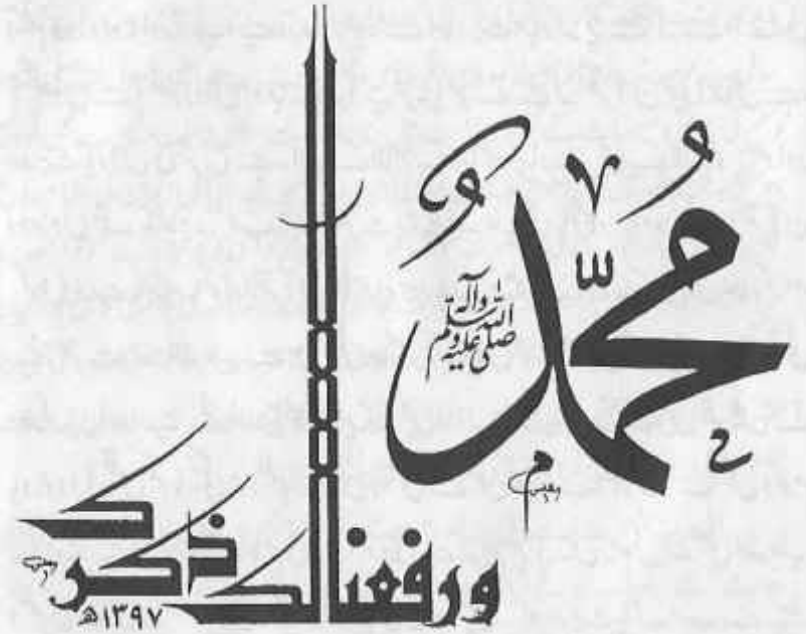 مُحَمَّدٌ
صلى الله عليه وآله وسلم
ورفعنالك ذكرك
١٣٩٧ھ